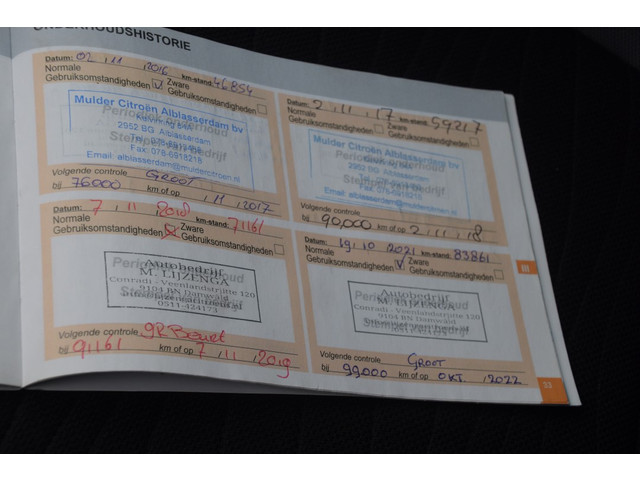 ONDERHOUDSHISTORIE
Datum: 02 , 11 , 2016 km-stand: 46854
Normale
Gebruiksomstandigheden Zware
Gebruiksomstandigheden
Periodiek onderhoud
Mulder Citroën Alblasserdam bv
2952 BG Alblasserdam
Stempel bedrijf
Tel: 078-6912488
Fax: 078-6918218
Email: alblasserdam@muldercitroen.nl
Volgende controle GROOT
bij 76000 km of op , 11 , 2017
Datum: 2 , 11 , 17 km-stand: 59217
Normale
Gebruiksomstandigheden Zware
Gebruiksomstandigheden
Mulder Citroën Alblasserdam bv
2952 BG Alblasserdam
Stempel bedrijf
Fax: 078-6918218
Email: alblasserdam@muldercitroen.nl
Volgende controle
bij 90.000 km of op 2 , 11 , 18
Datum: 7 , 11 , 2018 km-stand: 71161
Normale
Gebruiksomstandigheden Zware
Gebruiksomstandigheden
Periodiek onderhoud
Autobedrijf
M. LIJZENGA
Conradi - Veenlandsritte 120
9104 BN Damwald
Stempel bedrijf
0511-424173
Volgende controle GR Beurt
bij 91161 km of op 7 , 11 , 2019
Datum: 19 , 10 , 2021 km-stand: 83861
Normale
Gebruiksomstandigheden Zware
Gebruiksomstandigheden
Periodiek onderhoud
Autobedrijf
M. LIJZENGA
Conradi - Veenlandsritte 120
9104 BN Damwald
Stempel bedrijf
Volgende controle GROOT
bij 99000 km of op OKT. , 2022
III
33